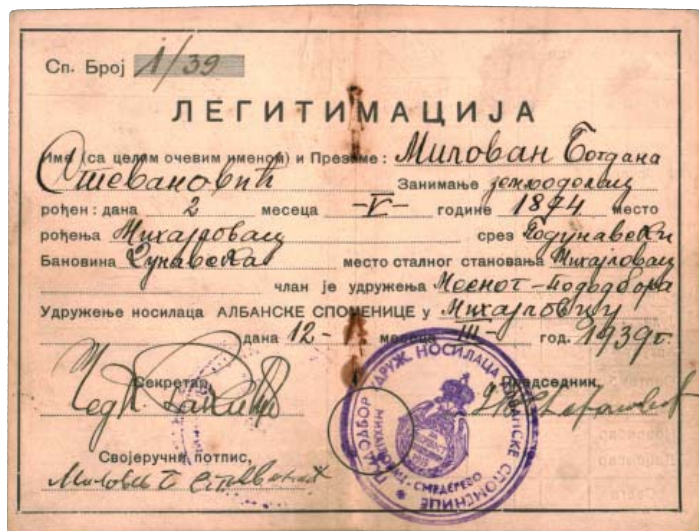 Сп. Број 1/39
ЛЕГИТИМАЦИЈА
Име (са целим очевим именом) и Презиме: Милован Богдана
Стевановић Занимање земљоделац
рођен: дана 2 месеца -V- године 1874 место
рођења Михајловац срез Подунавски
Бановина Дунавска место сталног становања Михајловац
члан је удружења Месног-пододбора
Удружење носилаца АЛБАНСКЕ СПОМЕНИЦЕ у Михајловцу
дана 12- месеца III- год. 1939г.
Секретар, Председник,
Својеручни потпис,
ПОДОДБОР УДРУЖ. НОСИЛАЦА АЛБАНСКЕ СПОМЕНИЦЕ
СМЕДЕРЕВО